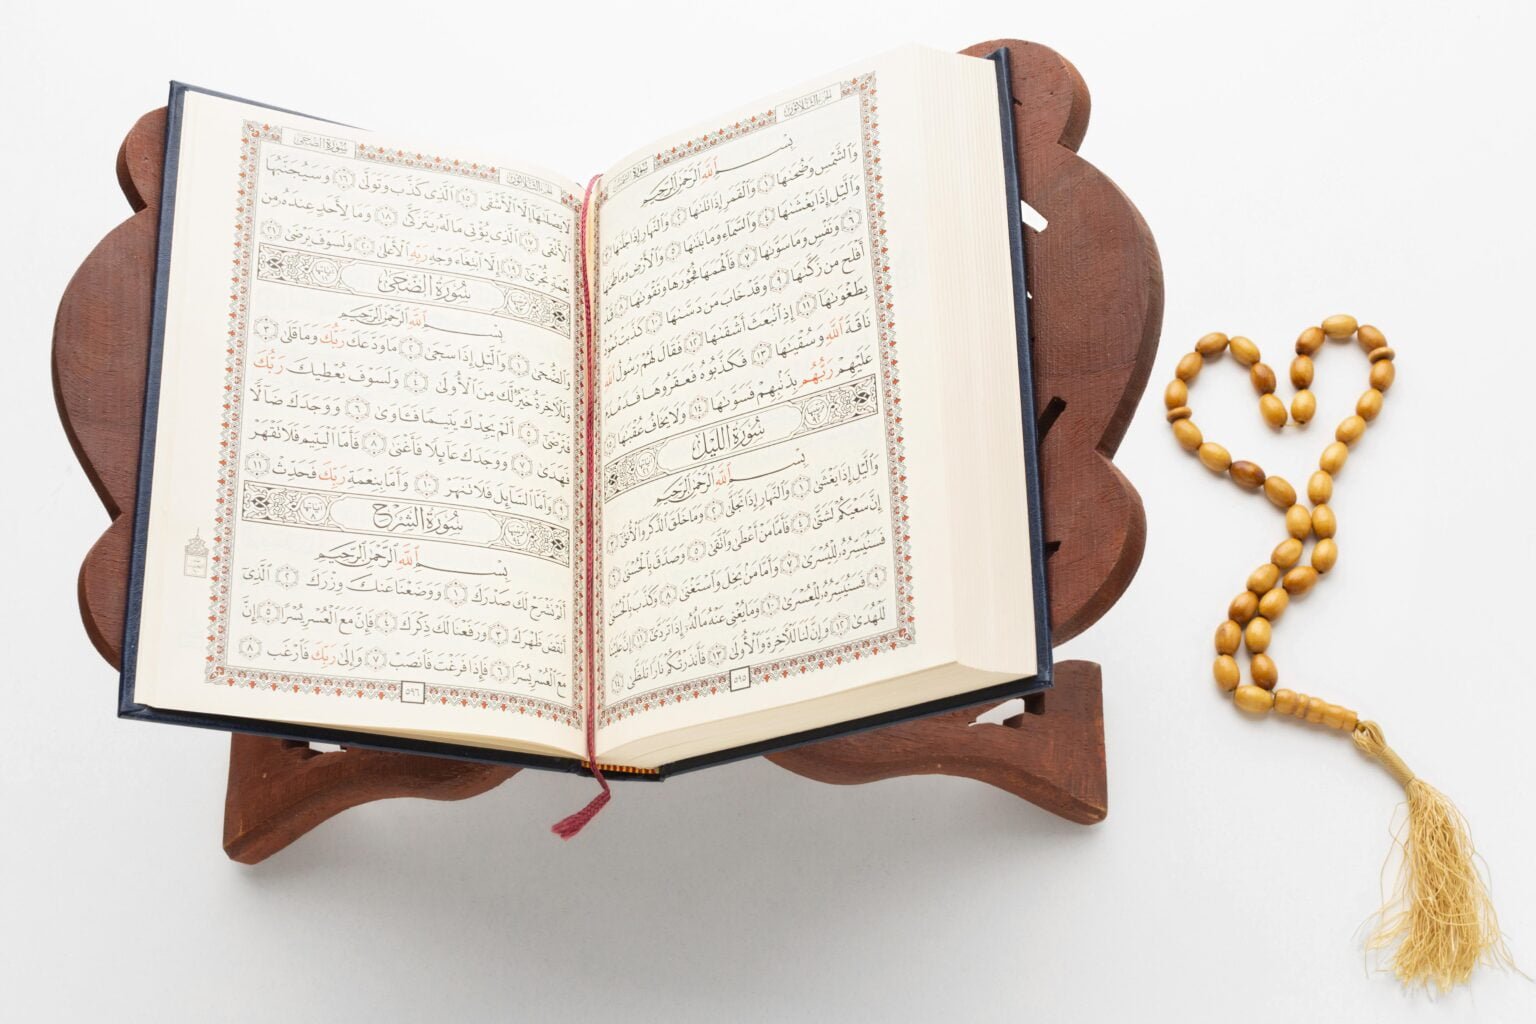 الجزء الثلاثون سورة الشمس
بِسْمِ اللَّهِ الرَّحْمَٰنِ الرَّحِيمِ
وَالشَّمْسِ وَضُحَىٰهَا ١ وَالْقَمَرِ إِذَا تَلَىٰهَا ٢ وَالنَّهَارِ إِذَا جَلَّىٰهَا ٣
وَالَّيْلِ إِذَا يَغْشَىٰهَا ٤ وَالسَّمَاءِ وَمَا بَنَىٰهَا ٥ وَالْأَرْضِ وَمَا طَحَىٰهَا
٦ وَنَفْسٍ وَمَا سَوَّىٰهَا ٧ فَأَلْهَمَهَا فُجُورَهَا وَتَقْوَىٰهَا ٨ قَدْ
أَفْلَحَ مَن زَكَّىٰهَا ٩ وَقَدْ خَابَ مَن دَسَّىٰهَا ١٠ كَذَّبَتْ ثَمُودُ
بِطَغْوَىٰهَا ١١ إِذِ انۢبَعَثَ أَشْقَىٰهَا ١٢ فَقَالَ لَهُمْ رَسُولُ اللَّهِ
نَاقَةَ اللَّهِ وَسُقْيَٰهَا ١٣ فَكَذَّبُوهُ فَعَقَرُوهَا فَدَمْدَمَ
عَلَيْهِمْ رَبُّهُم بِذَنۢبِهِمْ فَسَوَّىٰهَا ١٤ وَلَا يَخَافُ عُقْبَٰهَا
سُورَةُ اللَّيْلِ
بِسْمِ اللَّهِ الرَّحْمَٰنِ الرَّحِيمِ
وَالَّيْلِ إِذَا يَغْشَىٰ ١ وَالنَّهَارِ إِذَا تَجَلَّىٰ ٢ وَمَا خَلَقَ الذَّكَرَ وَالْأُنثَىٰ ٣
إِنَّ سَعْيَكُمْ لَشَتَّىٰ ٤ فَأَمَّا مَنْ أَعْطَىٰ وَاتَّقَىٰ ٥ وَصَدَّقَ بِالْحُسْنَىٰ ٦
فَسَنُيَسِّرُهُ لِلْيُسْرَىٰ ٧ وَأَمَّا مَنۢ بَخِلَ وَاسْتَغْنَىٰ ٨ وَكَذَّبَ بِالْحُسْنَىٰ
٩ فَسَنُيَسِّرُهُ لِلْعُسْرَىٰ ١٠ وَمَا يُغْنِي عَنْهُ مَالُهُ إِذَا تَرَدَّىٰ ١١ إِنَّ عَلَيْنَا
لَلْهُدَىٰ ١٢ وَإِنَّ لَنَا لَلْآخِرَةَ وَالْأُولَىٰ ١٣ فَأَنذَرْتُكُمْ نَارًا تَلَظَّىٰ ١٤
٥٩٥
الجزء الثلاثون سورة الضحى
لَا يَصْلَىٰهَا إِلَّا الْأَشْقَى ١٥ الَّذِي كَذَّبَ وَتَوَلَّىٰ ١٦ وَسَيُجَنَّبُهَا
الْأَتْقَى ١٧ الَّذِي يُؤْتِي مَالَهُ يَتَزَكَّىٰ ١٨ وَمَا لِأَحَدٍ عِندَهُ مِن
نِّعْمَةٍ تُجْزَىٰ ١٩ إِلَّا ابْتِغَاءَ وَجْهِ رَبِّهِ الْأَعْلَىٰ ٢٠ وَلَسَوْفَ يَرْضَىٰ ٢١
سُورَةُ الضُّحَىٰ
بِسْمِ اللَّهِ الرَّحْمَٰنِ الرَّحِيمِ
وَالضُّحَىٰ ١ وَالَّيْلِ إِذَا سَجَىٰ ٢ مَا وَدَّعَكَ رَبُّكَ وَمَا قَلَىٰ ٣
وَلَلْآخِرَةُ خَيْرٌ لَّكَ مِنَ الْأُولَىٰ ٤ وَلَسَوْفَ يُعْطِيكَ رَبُّكَ
فَتَرْضَىٰ ٥ أَلَمْ يَجِدْكَ يَتِيمًا فَـَٔاوَىٰ ٦ وَوَجَدَكَ ضَالًّا
فَهَدَىٰ ٧ وَوَجَدَكَ عَائِلًا فَأَغْنَىٰ ٨ فَأَمَّا الْيَتِيمَ فَلَا تَقْهَرْ
٩ وَأَمَّا السَّائِلَ فَلَا تَنْهَرْ ١٠ وَأَمَّا بِنِعْمَةِ رَبِّكَ فَحَدِّثْ ١١
سُورَةُ الشَّرْحِ
بِسْمِ اللَّهِ الرَّحْمَٰنِ الرَّحِيمِ
أَلَمْ نَشْرَحْ لَكَ صَدْرَكَ ١ وَوَضَعْنَا عَنكَ وِزْرَكَ ٢ الَّذِي
أَنقَضَ ظَهْرَكَ ٣ وَرَفَعْنَا لَكَ ذِكْرَكَ ٤ فَإِنَّ مَعَ الْعُسْرِ يُسْرًا ٥ إِنَّ
مَعَ الْعُسْرِ يُسْرًا ٦ فَإِذَا فَرَغْتَ فَانصَبْ ٧ وَإِلَىٰ رَبِّكَ فَارْغَب ٨
٥٩٦